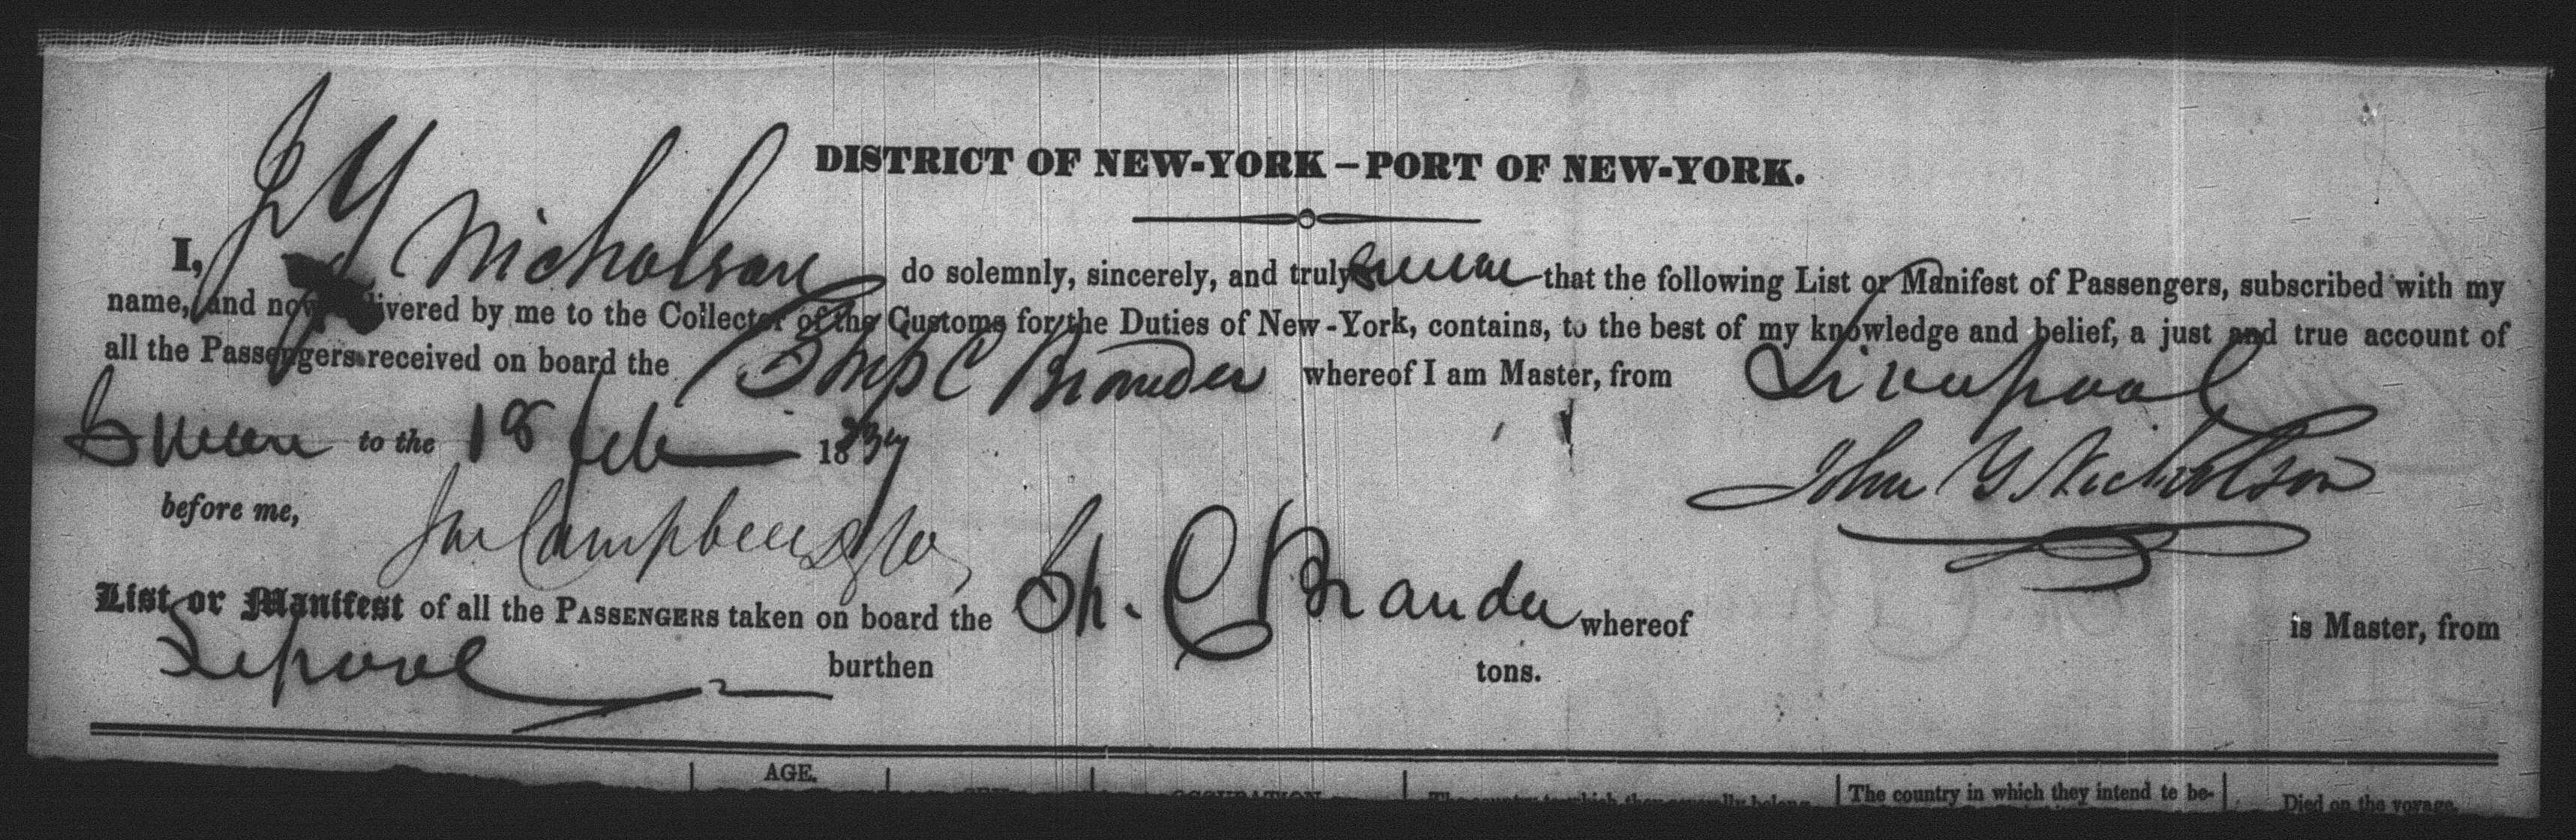 DISTRICT OF NEW-YORK – PORT OF NEW-YORK.
I, J Y Nicholson do solemnly, sincerely, and truly swear that the following List or Manifest of Passengers, subscribed with my
name, and now delivered by me to the Collector of the Customs for the Duties of New-York, contains, to the best of my knowledge and belief, a just and true account of
all the Passengers received on board the Ship C Brander whereof I am Master, from Liverpool
Sworn to the 18 Feb 1837
John Y Nicholson
before me, Campbell
List or Manifest of all the PASSENGERS taken on board the Sh. C Brander whereof is Master, from
Lepool burthen tons.
AGE. OCCUPATION The country to which they generally belong The country in which they intend to be- Died on the voyage.